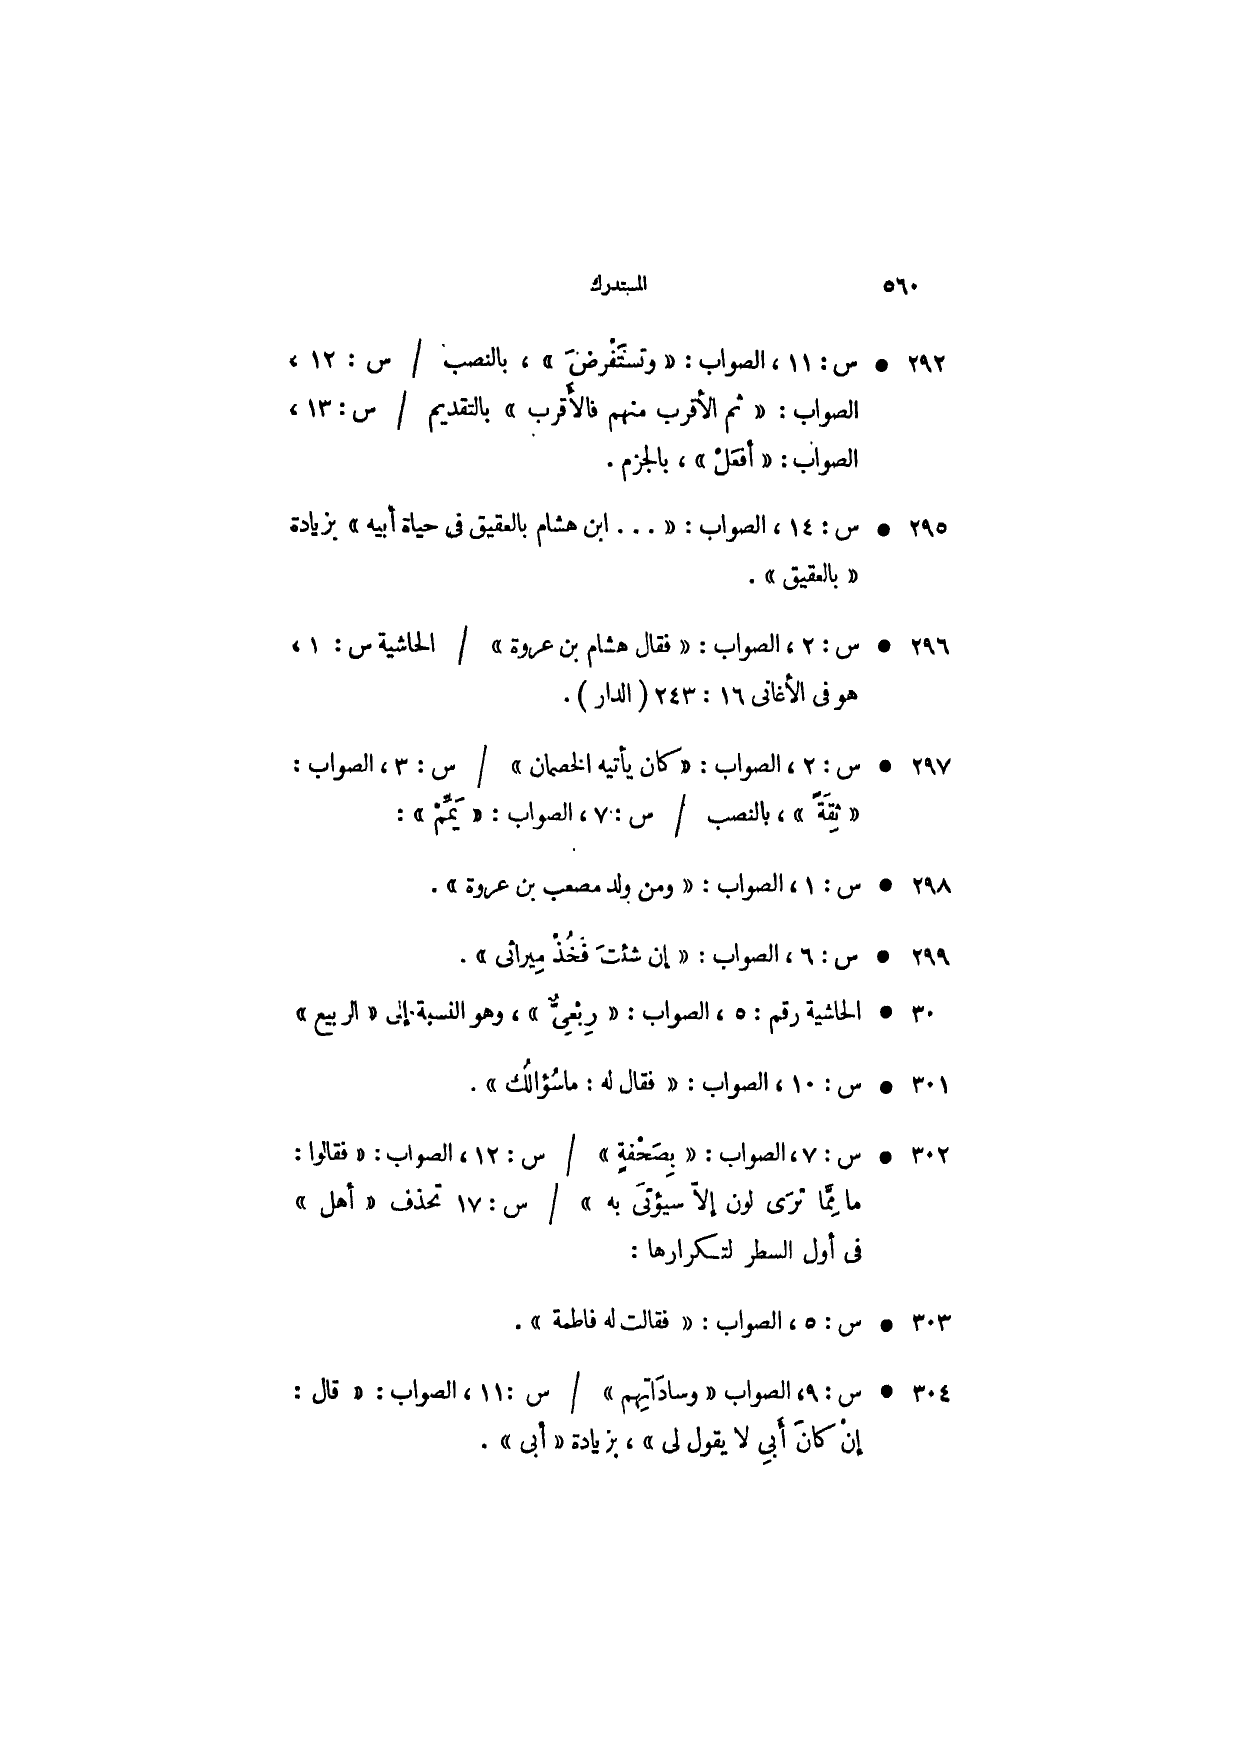 ٥٦٠ المستدرك
٢٩٢ ● س : ١١ ، الصواب : « وتستَفْرضَ » ، بالنصب / س : ١٢ ،
الصواب : « ثم الأقرب منهم فالأَقرب » بالتقديم / س : ١٣ ،
الصواب : « أفعَلْ » ، بالجزم .
٢٩٥ ● س : ١٤ ، الصواب : « . . . ابن هشام بالعقيق فى حياة أبيه » بزيادة
« بالعقيق » .
٢٩٦ ● س : ٢ ، الصواب : « فقال هشام بن عروة » / الحاشية س : ١ ،
هو فى الأغانى ١٦ : ٢٤٣ ( الدار ) .
٢٩٧ ● س : ٢ ، الصواب : « كان يأتيه الخصمان » / س : ٣ ، الصواب :
« ثِقَةً » ، بالنصب / س : ٧ ، الصواب : « يَمِّمْ » :
٢٩٨ ● س : ١ ، الصواب : « ومن ولد مصعب بن عروة » .
٢٩٩ ● س : ٦ ، الصواب : « إن شئتَ فَخُذْ مِيراثى » .
٣٠ ● الحاشية رقم : ٥ ، الصواب : « رِبْعِىٌّ » ، وهو النسبة إلى « الربيع »
٣٠١ ● س : ١٠ ، الصواب : « فقال له : ماسُؤالُك » .
٣٠٢ ● س : ٧ ، الصواب : « بِصَحْفةٍ » / س : ١٢ ، الصواب : « فقالوا :
ما مِمَّا ترَى لون إلاّ سيؤتَى به » / س : ١٧ تحذف « أهل »
فى أول السطر لتكرارها :
٣٠٣ ● س : ٥ ، الصواب : « فقالت له فاطمة » .
٣٠٤ ● س : ٩ ، الصواب « وسادَاتِهم » / س : ١١ ، الصواب : « قال :
إنْ كانَ أَبِي لا يقول لى » ، بزيادة « أبى » .